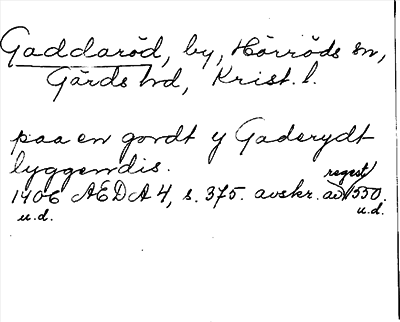 Gaddaröd, by, Hörröds sn,
Gärds hd, Krist. l.
paa en gordt y Gaderydt
lyggendis.
regest
1406 AEDA 4, s. 375. avskr. av 1550.
u.d. u.d.